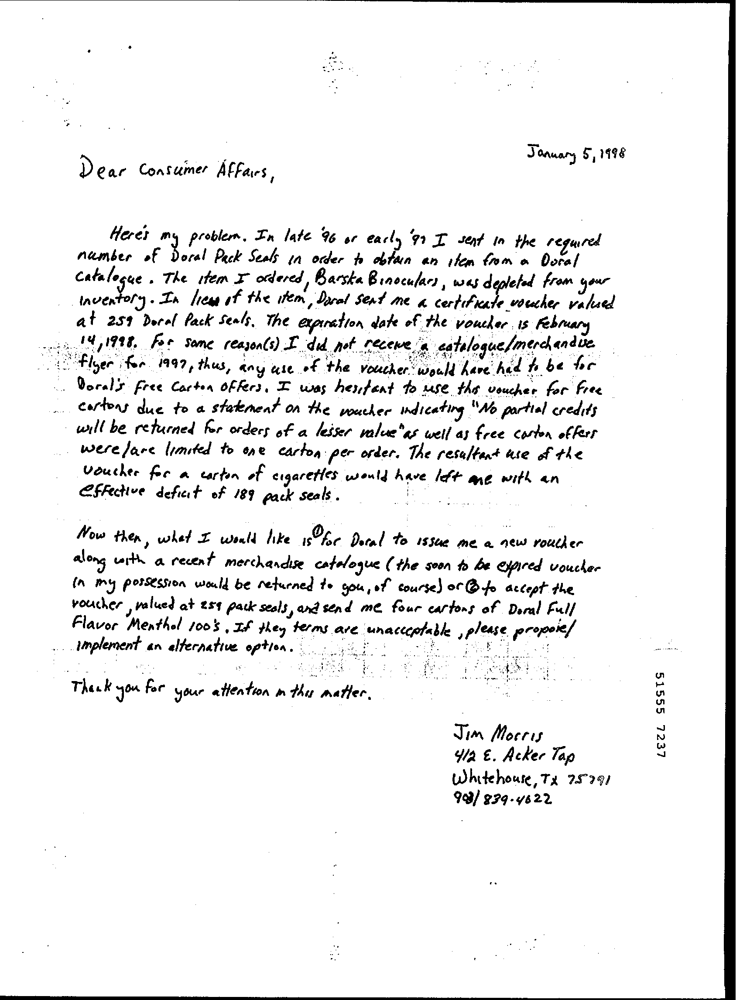 January 5, 1998
Dear Consumer Affairs,
Here's my problem. In late '96 or early '97 I sent in the required
number of Doral Pack Seals in order to obtain an item from a Doral
Catalogue. The item I ordered, Barska Binoculars, was depleted from your
inventory. In lieu of the item, Doral sent me a certificate voucher valued
at 259 Doral Pack Seals. The expiration date of the voucher is February
14, 1998. For some reason(s) I did not receive a catalogue/merchandise
flyer for 1997, thus, any use of the voucher would have had to be for
Doral's Free Carton Offers. I was hesitant to use this voucher for free
cartons due to a statement on the voucher indicating "No partial credits
will be returned for orders of a lesser value" as well as free carton offers
were/are limited to one carton per order. The resultant use of the
voucher for a carton of cigarettes would have left me with an
effective deficit of 189 pack seals.
Now then, what I would like is ① for Doral to issue me a new voucher
along with a recent merchandise catalogue (the soon to be expired voucher
in my possession would be returned to you, of course) or ② to accept the
voucher, valued at 259 pack seals, and send me four cartons of Doral Full
Flavor Menthol 100's. If they terms are unacceptable, please propose/
implement an alternative option.
Thank you for your attention in this matter.
Jim Morris
412 E. Acker Tap
Whitehouse, Tx 75791
903/839-4622
51555 7237